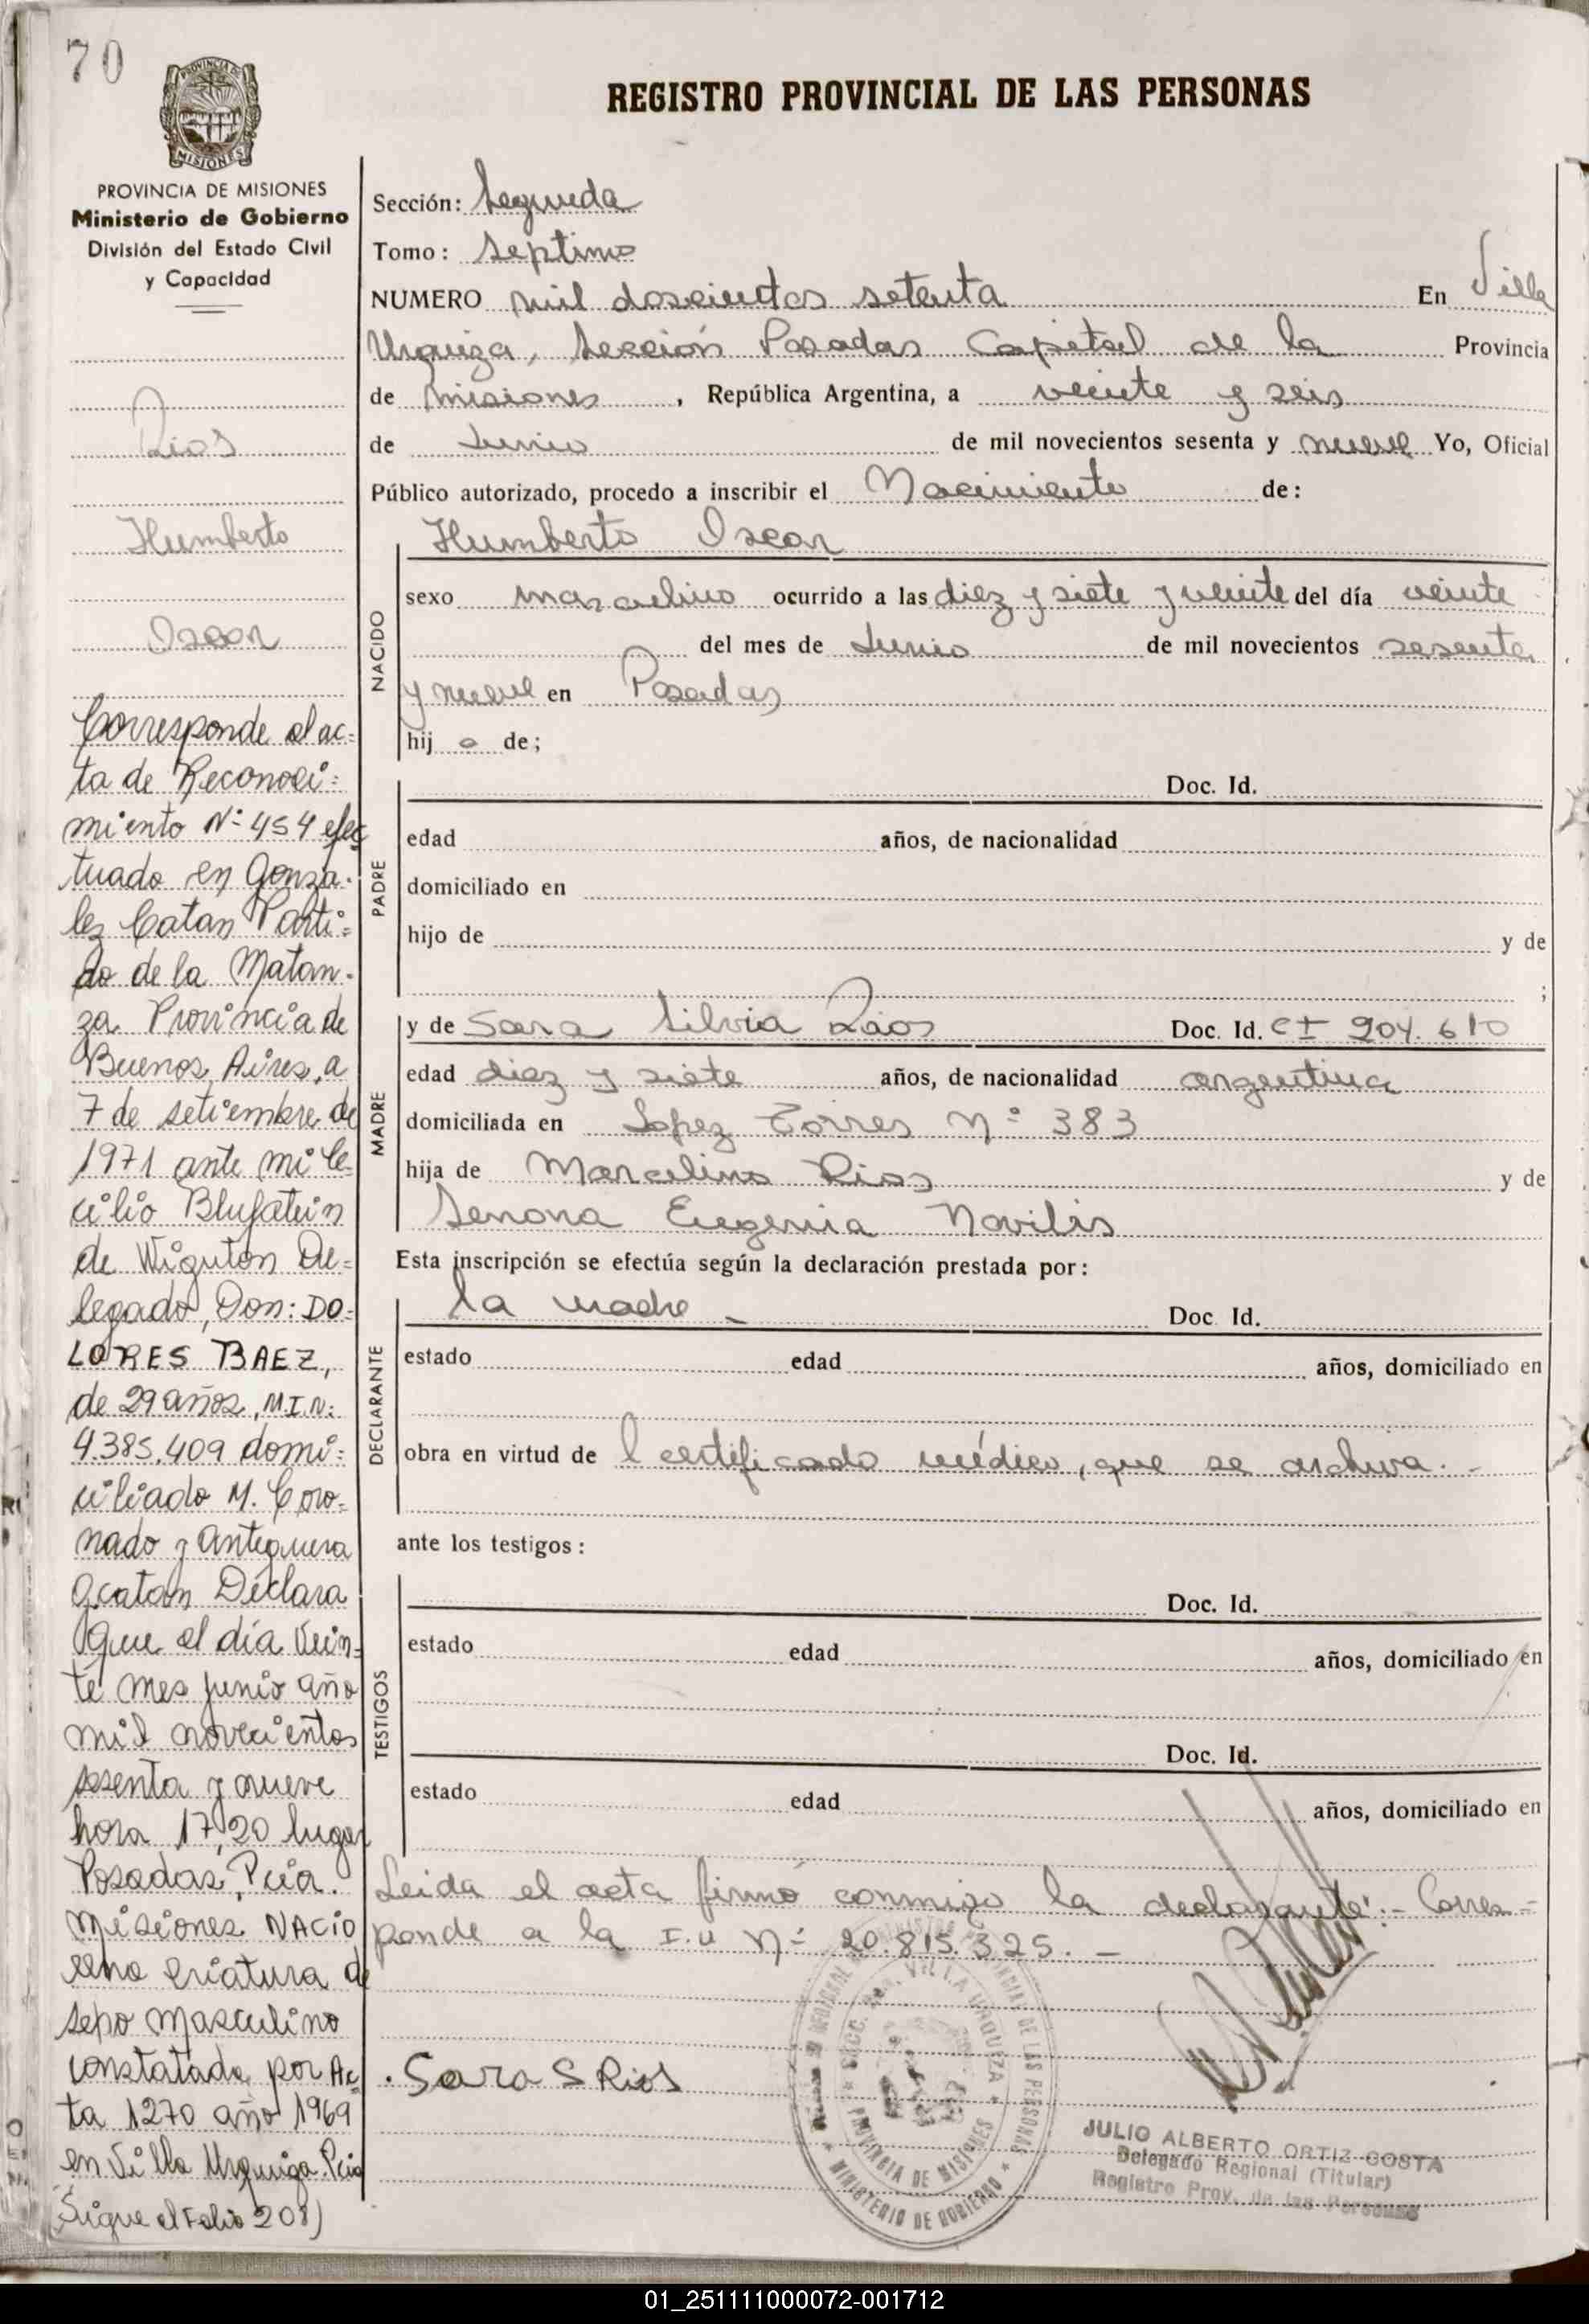 70
PROVINCIA DE
MISIONES
REGISTRO PROVINCIAL DE LAS PERSONAS
PROVINCIA DE MISIONES
Ministerio de Gobierno
División del Estado Civil
y Capacidad
Rios
Humberto
Oscar
Corresponde al ac=
ta de Reconoci=
miento Nº 454 efec
tuado en Gonza-
lez Catan Parti=
do de la Matan-
za Provincia de
Buenos Aires, a
7 de setiembre de
1971 ante mi Ce-
cilio
de De=
legado, Don: DO=
LORES BAEZ,
de 29 años, M.I.N:
4.385.409 domi=
ciliado M. Coro=
nado y Antequera
Gcatan Declara
que el día vein-
te mes junio año
mil novecientos
sesenta y nueve
hora 17,20 lugar
Posadas, Pcia.
Misiones NACIO
una criatura de
sexo masculino
constatada por Ac
ta 1270 año 1969
en Villa Urquiza. Pcia
Sigue el Folio 208)
Sección: Segunda
Tomo: Septimo
NUMERO mil doscientos setenta En Villa
Urquiza, Sección Posadas Capital de la Provincia
de Misiones, República Argentina, a veinte y seis
de Junio de mil novecientos sesenta y nueve Yo, Oficial
Público autorizado, procedo a inscribir el Nacimiento de:
Humberto Oscar
NACIDO
sexo masculino ocurrido a las diez y siete y veinte del día veinte
del mes de Junio de mil novecientos sesenta
y nueve en Posadas
hij o de;
PADRE
Doc. Id.
edad años, de nacionalidad
domiciliado en
hijo de y de
;
MADRE
y de Sara Silvia Rios Doc. Id. CI 204.610
edad diez y siete años, de nacionalidad argentina
domiciliada en Lopez Torres Nº 383
hija de Marcelino Rios y de
Senona Eugenia Novilis
Esta inscripción se efectúa según la declaración prestada por:
DECLARANTE
la madre - Doc. Id.
estado edad años, domiciliado en
obra en virtud de l certificado médico, que se archiva.-
ante los testigos:
TESTIGOS
Doc. Id.
estado edad años, domiciliado en
Doc. Id.
estado edad años, domiciliado en
Leida el acta firmó conmigo la declarante.- Corres=
ponde a la I.U Nº 20.815.325.-
Sara S Rios
SECC. VILLA URQUIZA
PROVINCIA DE MISIONES
MINISTERIO DE GOBIERNO
DE LAS PERSONAS
JULIO ALBERTO ORTIZ COSTA
Delegado Regional (Titular)
Registro Prov. de las Personas
01_251111000072-001712